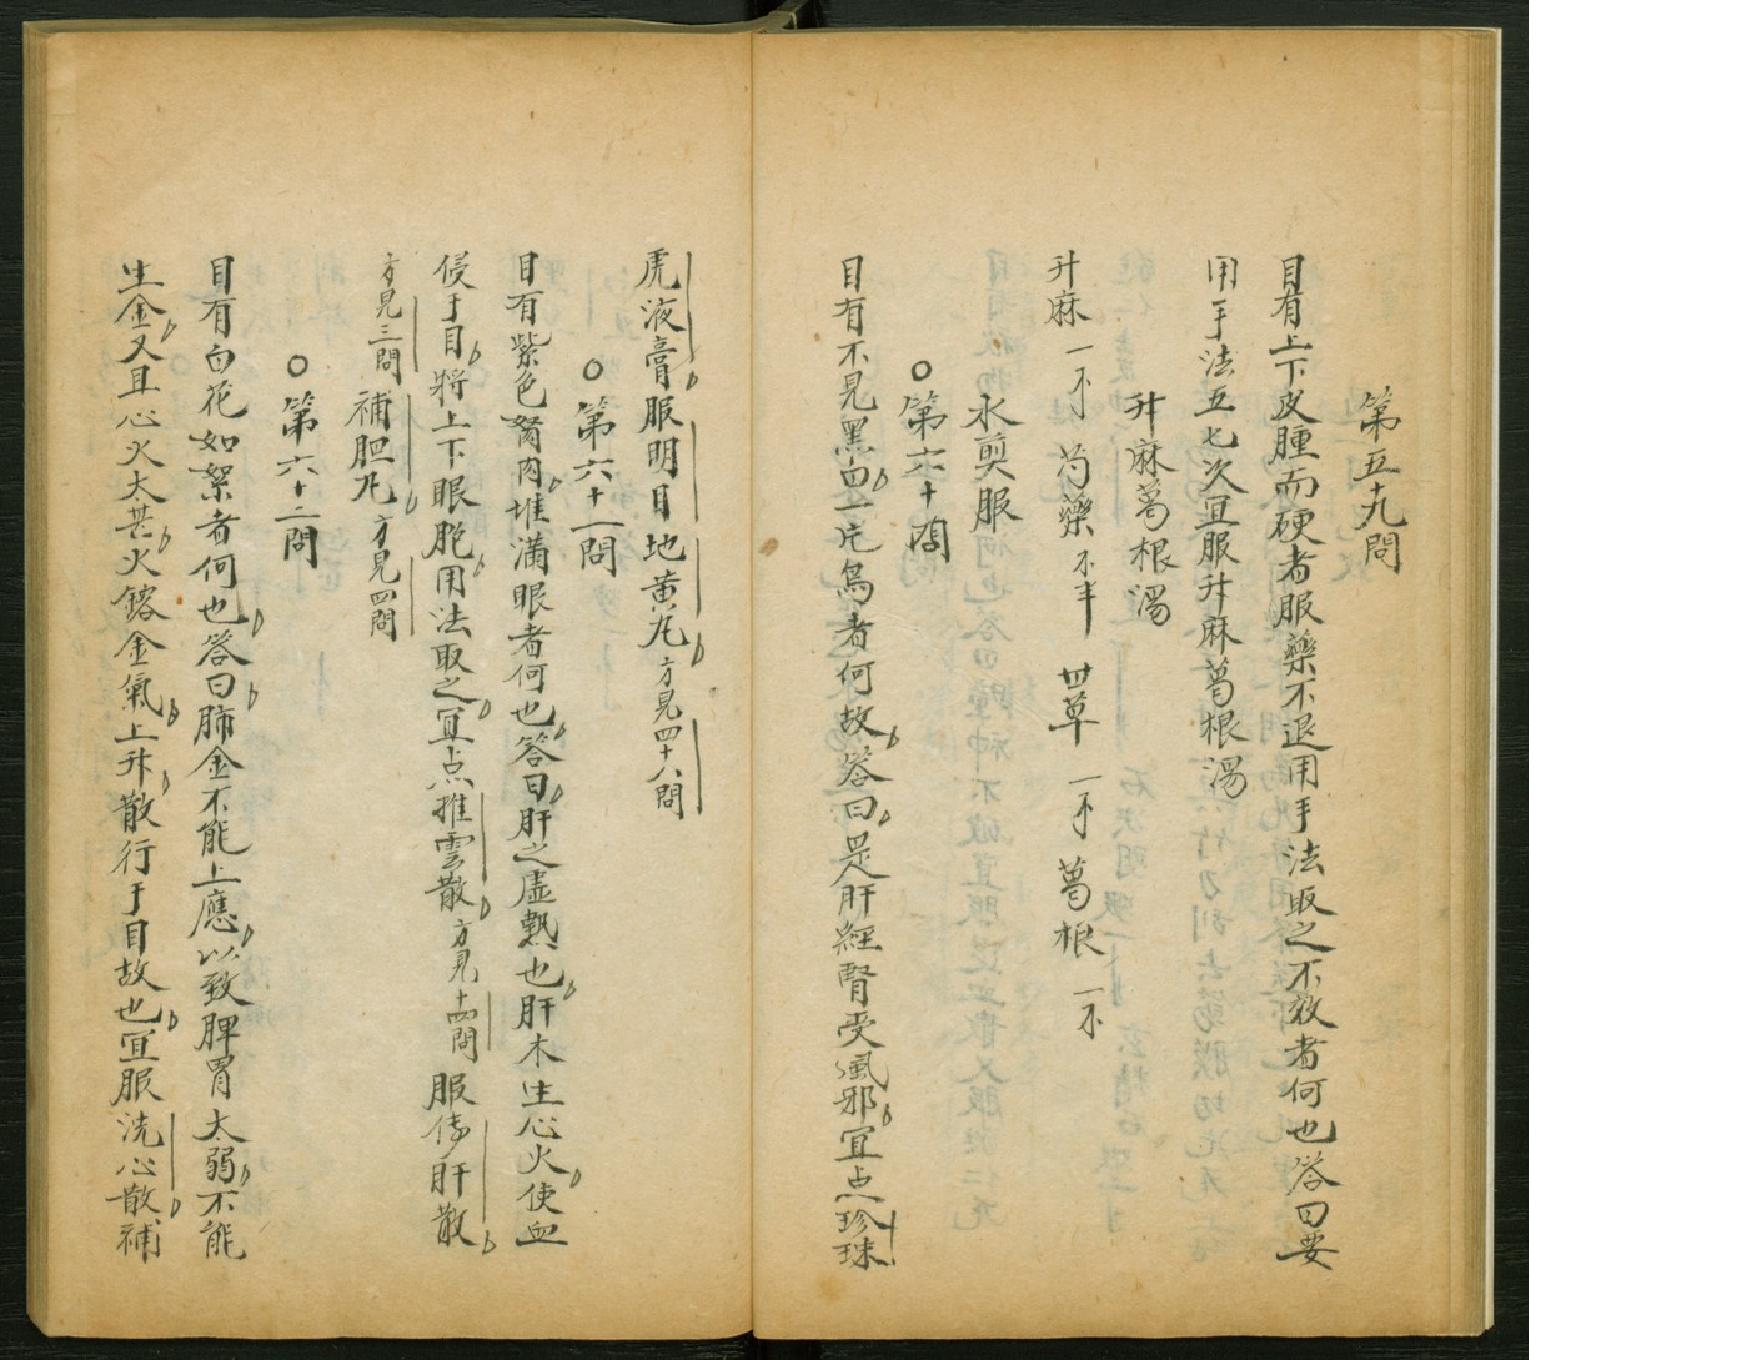 第五十九問
目有上下皮腫而硬者服藥不退用手法取之不效者何也答曰要
用手法五七次宜服升麻葛根湯
升麻葛根湯
升麻一不 芍藥不半 甘草一不 葛根一不
水煎服
○第六十問
目有不見黑白一片烏者何故答曰是肝經腎受風邪宜点珍珠
虎液膏服明目地黃丸方見四十八問
○第六十一問
目有紫色胬肉堆滿眼者何也答曰肝之虛熱也肝木生心火使血
侵于目將上下眼胞用法取之宜点推雲散方見十四問服修肝散
方見三問 補胆丸方見四問
○第六十二問
目有白花如絮者何也答曰肺金不能上應以致脾胃太弱不能
生金又且心火太甚火鎔金氣上升散行于目故也宜服洗心散補